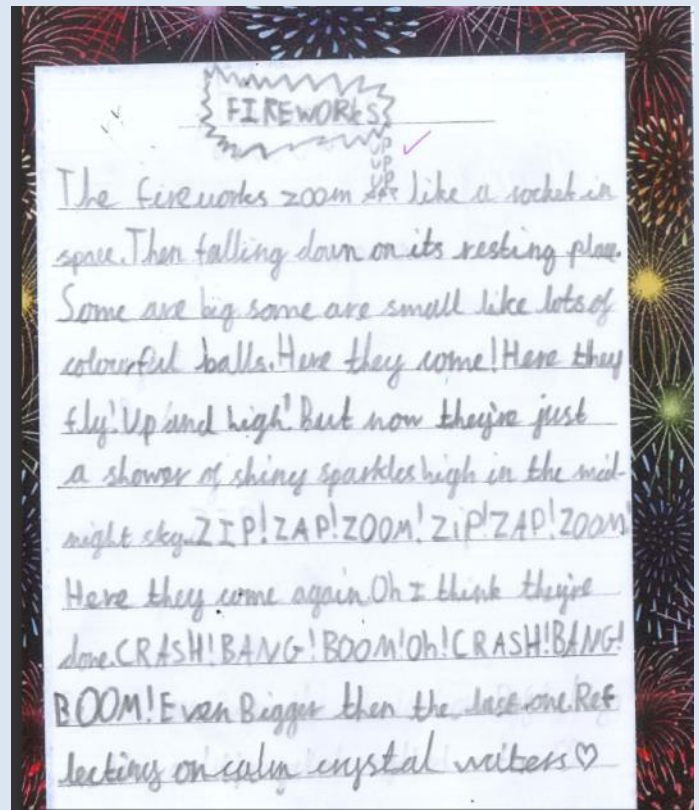 FIREWORKS
UP
UP
UP
UP
The fireworks zoom like a rocket in
space. Then falling down on its resting place.
Some are big some are small like lots of
colourful balls. Here they come! Here they
fly! Up and high! But now they're just
a shower of shiny sparkles high in the mid-
night sky. ZIP! ZAP! ZOOM! ZiP! ZAP! ZOOM!
Here they come again. Oh I think they're
done. CRASH! BANG! BOOM! Oh! CRASH! BANG!
BOOM! Even Bigger then the last one. Ref
lecting on calm crystal writers ♡